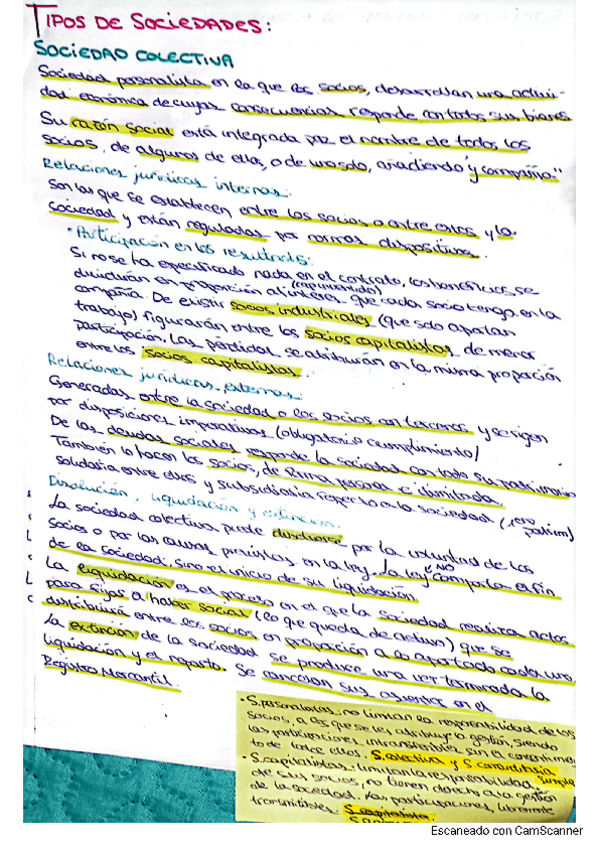 TIPOS DE SOCIEDADES:
SOCIEDAD COLECTIVA
Sociedad personalista en la que los socios, desarrollan una activi-
dad económica de cuyas consecuencias responde con todos sus bienes
Su razón social está integrada por el nombre de todos los
socios, de algunos de ellos, o de uno solo, añadiendo "y compañía."
Relaciones jurídicas internas:
Son las que se establecen entre los socios o entre estos y la
sociedad y están reguladas por normas dispositivas.
• Participación en los resultados:
Si no se ha especificado nada en el contrato, los beneficios se
dividirán en proporción al interés que cada socio tenga en la
compañía. De existir socios industriales (que solo aportan
trabajo) figurarán entre los socios capitalistas de menor
participación. Las pérdidas se atribuirán en la misma proporción
entre los socios capitalistas.
Relaciones jurídicas externas:
Generadas entre la sociedad o los socios con terceros y se rigen
por disposiciones imperativas (obligatorio cumplimiento)
De las deudas sociales responde la sociedad con todo su patrimonio
También lo hacen los socios, de forma personal e ilimitada,
solidaria entre ellos y subsidiaria respecto a la sociedad (1ero
patrim)
Disolución, liquidación y extinción.
La sociedad colectiva puede disolverse por la voluntad de los
socios o por las causas previstas en la ley. La ley NO comporta el fin
de la sociedad, sino el inicio de su liquidación.
La liquidación es el proceso en el que la sociedad realiza actos
para fijar el haber social (lo que queda de activo) que se
distribuirá entre los socios en proporción a lo aportado cada uno
La extinción de la sociedad se produce una vez terminada la
liquidación y el reparto. Se cancelan sus asientos en el
Registro Mercantil.
• S. personalistas: no limitan la responsabilidad de los
socios, a los que se les atribuye la gestión, siendo
las participaciones intransmisibles sin el consentimien
to de todos ellos. S. colectiva y S. comanditaria
simple
• S. capitalistas: limitan la responsabilidad
de sus socios, no tienen derecho a la gestión
de la sociedad. Las participaciones, libremente
transmitibles. S. capitalista
Escaneado con CamScanner